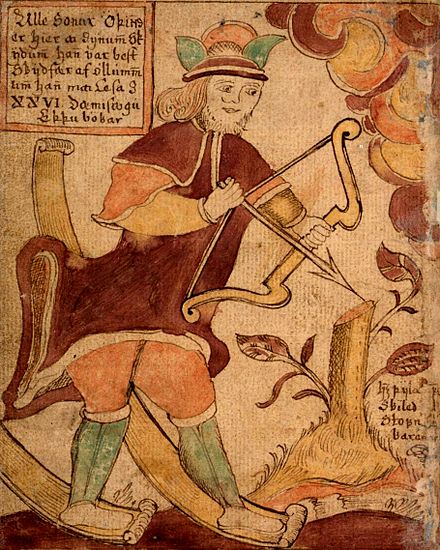 Ulle Sonur Oþins
er hier ä Synum Sk
ydum han var best
Skydfær af ollumm
um han mä Lesa I
XXVI Dæmisøgu
Eppu bokar
Skiled
Stopn